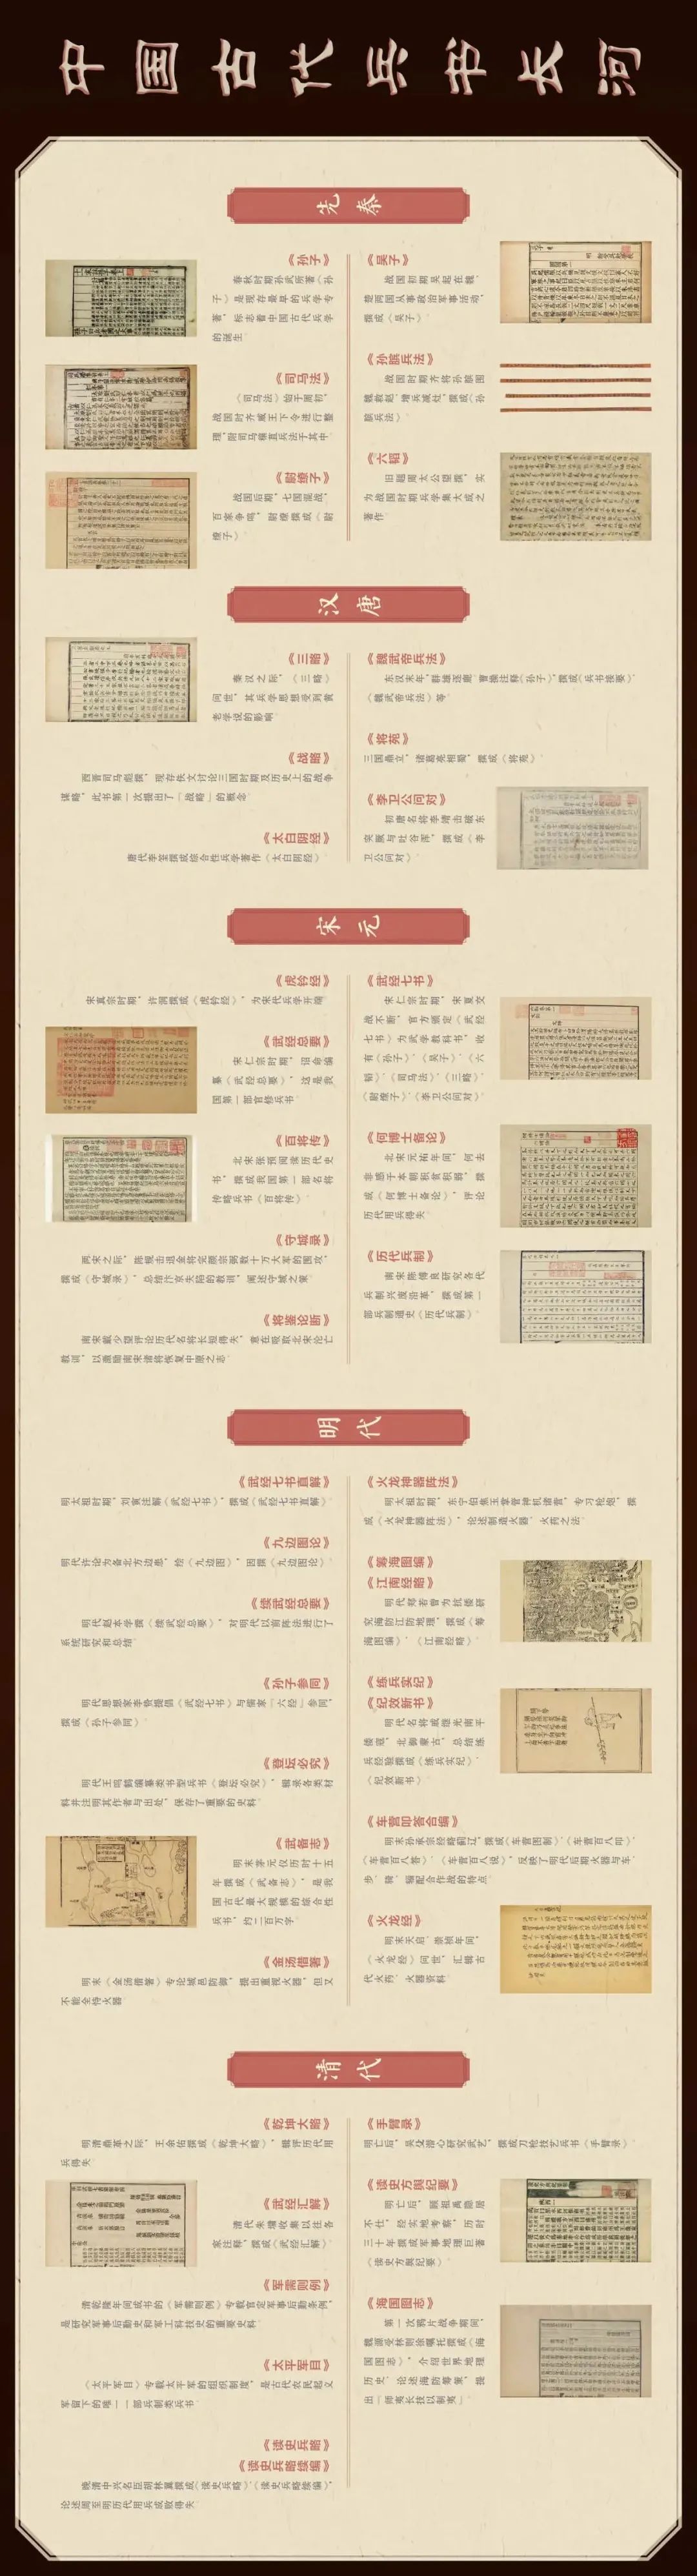 中国古代兵书长河
先秦
《孙子》
春秋时期孙武所著《孙
子》是现存最早的兵学专
著，标志着中国古代兵学
的诞生
《司马法》
《司马法》始于周初，
战国时齐威王下令进行整
理，附司马穰苴兵法于其中
《尉缭子》
战国后期，七国鏖战，
百家争鸣，尉缭撰成《尉
缭子》
《吴子》
战国初期吴起在魏、
楚两国从事政治军事活动，
撰成《吴子》
《孙膑兵法》
战国时期齐将孙膑围
魏救赵、增兵减灶，撰成《孙
膑兵法》
《六韬》
旧题周太公望撰，实
为战国时期兵学集大成之
著作
汉唐
《三略》
秦汉之际，《三略》
问世，其兵学思想受到黄
老学说的影响
《战略》
西晋司马彪撰，现存佚文讨论三国时期及历史上的战争
谋略，此书第一次提出了“战略”的概念
《太白阴经》
唐代李筌撰成综合性兵学著作《太白阴经》
《魏武帝兵法》
东汉末年，群雄逐鹿，曹操注释《孙子》，撰成《兵书接要》、
《魏武帝兵法》等
《将苑》
三国鼎立，诸葛亮相蜀，撰成《将苑》
《李卫公问对》
初唐名将李靖击破东
突厥与吐谷浑，撰成《李
卫公问对》
宋元
《虎钤经》
宋真宗时期，许洞撰成《虎钤经》，为宋代兵学开端
《武经总要》
宋仁宗时期，诏命编
纂《武经总要》，这是我
国第一部官修兵书
《百将传》
北宋张预阅读历代史
书，撰成我国第一部名将
传略兵书《百将传》
《守城录》
两宋之际，陈规击退金将完颜宗弼数十万大军的围攻，
撰成《守城录》，总结汴京失陷的教训，阐述守城之策
《将鉴论断》
南宋戴少望评论历代名将长短得失，意在吸取北宋沦亡
教训，以激励南宋诸将恢复中原之志
《武经七书》
宋仁宗时期，宋夏交
战不断，官方颁定《武经
七书》为武学教科书，收
有《孙子》、《吴子》、《六
韬》、《司马法》、《三略》、
《尉缭子》、《李卫公问对》
《何博士备论》
北宋元祐年间，何去
非感于本朝积贫积弱，撰
成《何博士备论》，评论
历代用兵得失
《历代兵制》
南宋陈傅良研究各代
兵制兴废沿革，撰成第一
部兵制通史《历代兵制》
明代
《武经七书直解》
明太祖时期，刘寅注解《武经七书》，撰成《武经七书直解》
《九边图论》
明代许论为备北方边患，绘《九边图》，因撰《九边图论》
《续武经总要》
明代赵本学撰《续武经总要》，对明代以前阵法进行了
系统研究和总结
《孙子参同》
明代思想家李贽提倡《武经七书》与儒家“六经”参同，
撰成《孙子参同》
《登坛必究》
明代王鸣鹤编纂类书型兵书《登坛必究》，辑录各类材
料并注明其作者与出处，保存了重要的史料
《武备志》
明末茅元仪历时十五
年撰成《武备志》，是我
国古代最大规模的综合性
兵书，约二百万字
《金汤借箸》
明末《金汤借箸》专论城邑防御，提出重视火器，但又
不能全恃火器
《火龙神器阵法》
明太祖时期，东宁伯焦玉掌管神机诸营，专习枪炮，撰
成《火龙神器阵法》，论述制造火器、火药之法
《筹海图编》
《江南经略》
明代郑若曾为抗倭研
究海防江防地理，撰成《筹
海图编》、《江南经略》
《练兵实纪》
《纪效新书》
明代名将戚继光南平
倭寇，北御蒙古，总结练
兵经验撰成《练兵实纪》、
《纪效新书》
《车营叩答合编》
明末孙承宗经略蓟辽，撰成《车营图制》、《车营百八叩》、
《车营百八答》、《车营百八说》，反映了明代后期火器与车、
步、骑、辎配合作战的特点
《火龙经》
明末天启、崇祯年间，
《火龙经》问世，汇辑古
代火药、火器资料
清代
《乾坤大略》
明清鼎革之际，王余佑撰成《乾坤大略》，辑评历代用
兵得失
《武经汇解》
清代朱墉收集以往各
家注释，撰成《武经汇解》
《军需则例》
清乾隆年间成书的《军需则例》专载官定军事后勤条例，
是研究军事后勤史和军工科技史的重要史料
《太平军目》
《太平军目》专载太平军的组织制度，是古代农民起义
军留下的唯一一部兵制类兵书
《读史兵略》
《读史兵略续编》
晚清中兴名臣胡林翼撰成《读史兵略》、《读史兵略续编》，
论述周至明历代用兵成败得失
《手臂录》
明亡后，吴殳潜心研究武艺，撰成刀枪技艺兵书《手臂录》
《读史方舆纪要》
明亡后，顾祖禹隐居
不仕，经实地考察，历时
三十年撰成军事地理巨著
《读史方舆纪要》
《海国图志》
第一次鸦片战争期间，
魏源受林则徐嘱托撰成《海
国图志》，介绍世界地理
历史，论述海防筹策，提
出“师夷长技以制夷”